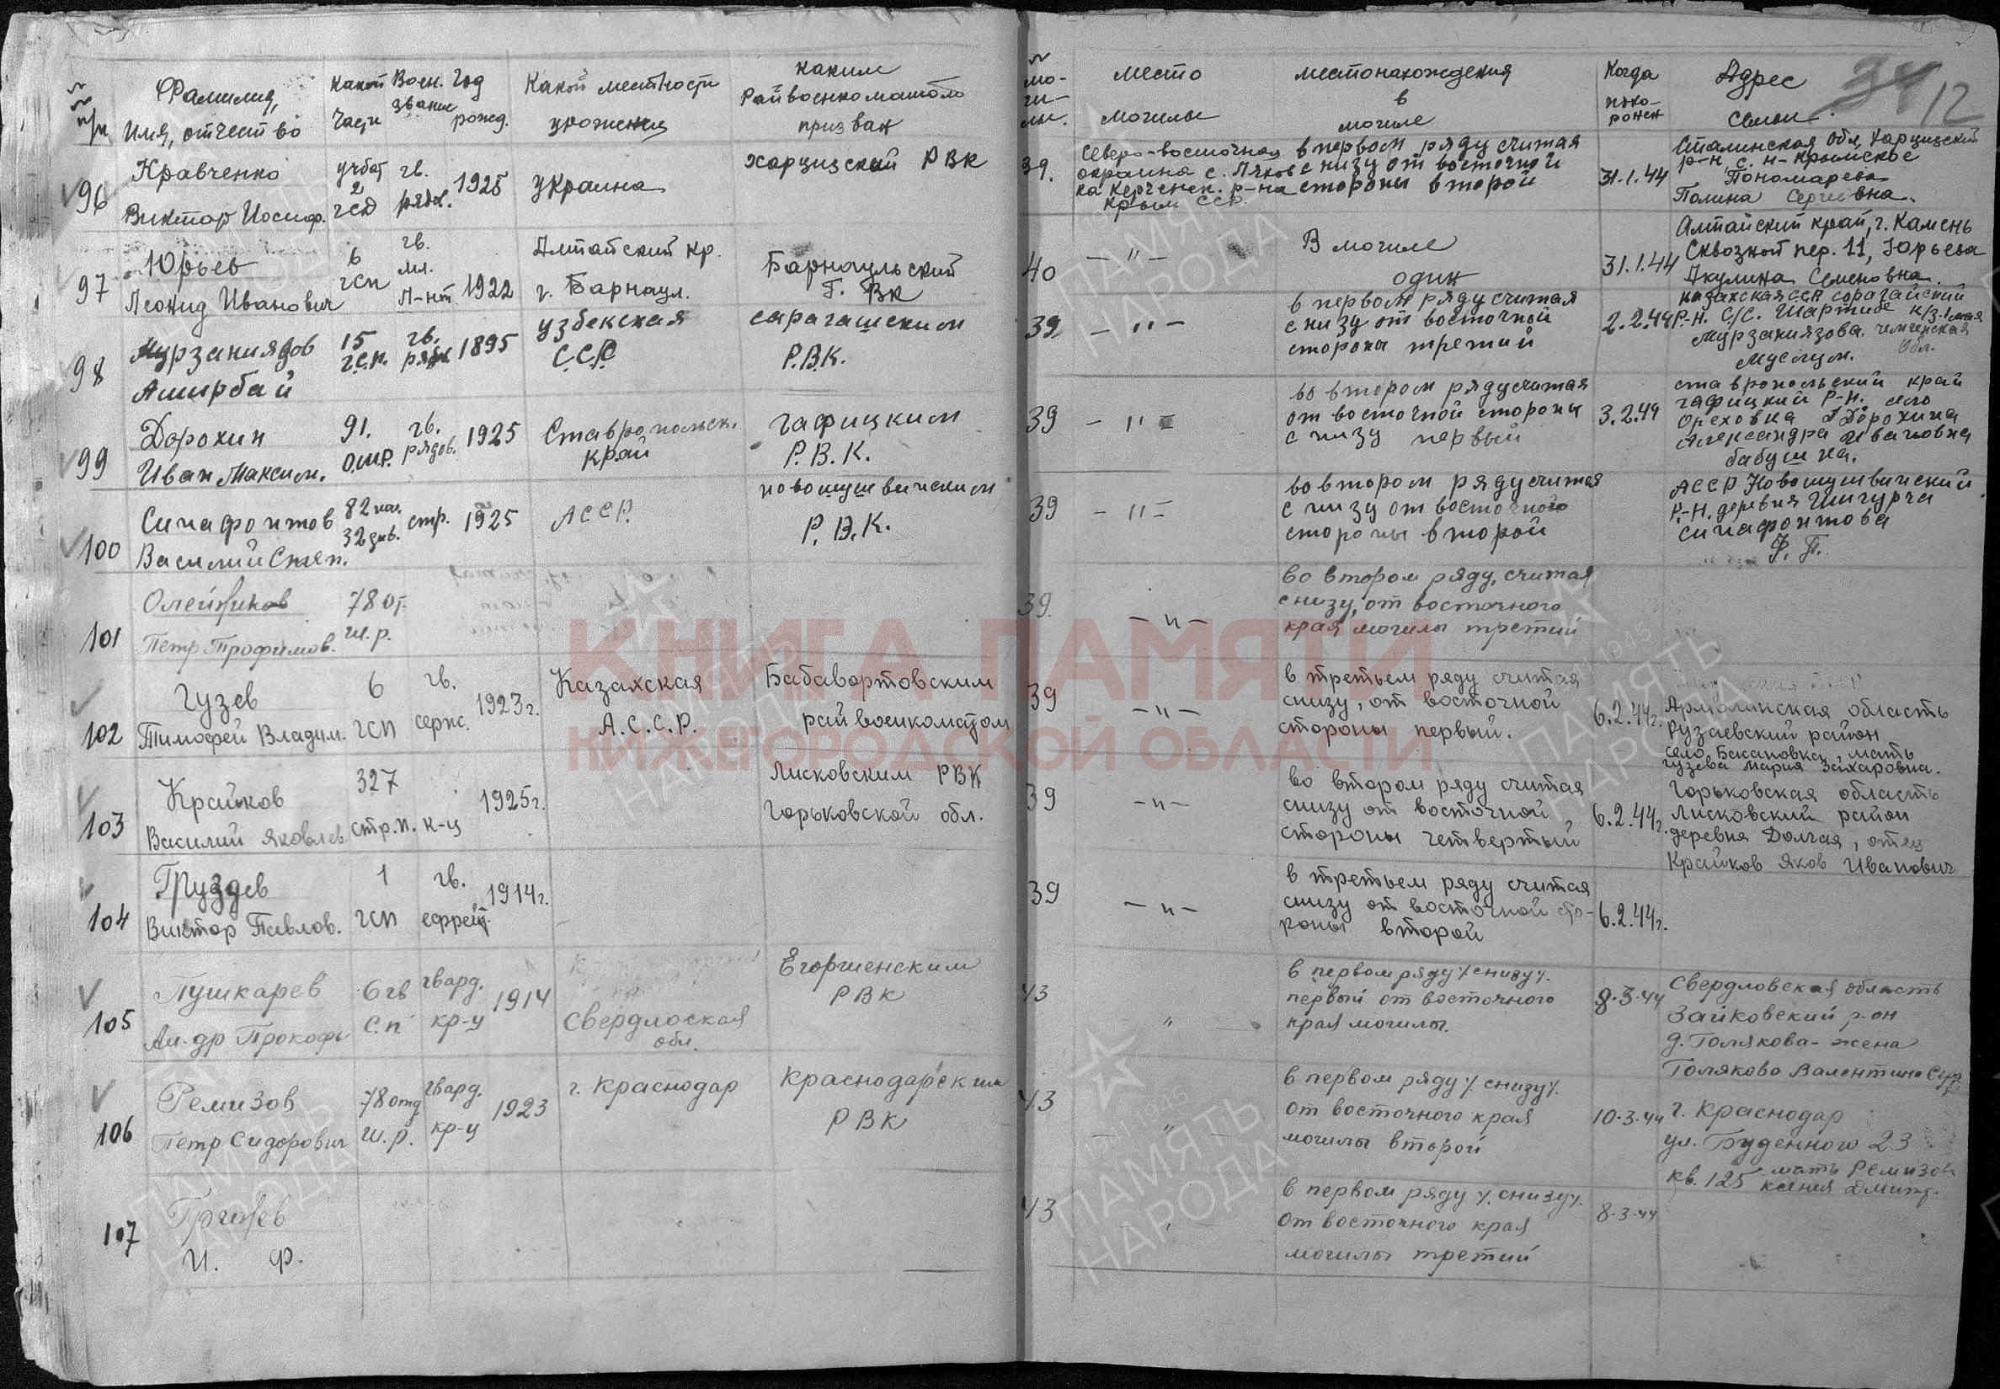 № п/п
Фамилия, Имя, отчество
Какой части
Воен. звание
Год рожд.
Какой местности уроженец
каким Райвоенкоматом призван
№ могилы
место могилы
местонахождения в могиле
Когда похоронен
Адрес семьи
12
96
Кравченко
Виктор Иосиф.
учбат 2 гсд
гв. ряд.
1925
Украина
Харцизский РВК
39.
Северо-восточная окраина с. Аджимушкая
Керченск. р-на Крым ССР
в первом ряду считая с низу от восточной стороны второй
31.1.44
Сталинская обл, Харцизский
р-н с. н-Крынское
Пономарева
Полина Сергеевна.
97
Юрьев
Леонид Иванович
6 гсп
гв. мл. л-нт
1922
Алтайский кр.
г. Барнаул.
Барнаульский
Г. ВК
40
— " —
В могиле
один
31.1.44
Алтайский край, г. Камень
Сквозной пер. 11, Юрьева
Акулина Семеновна.
98
Мурзаниядов
Аширбай
15 гсп.
гв. ряд
1895
узбекская
С.С.Р.
сарагашским
Р.В.К.
39
— " —
в первом ряду считая
с низу от восточной
стороны третий
2.2.44
казахская ССР сарагайский
Р-Н. С/С. Шартибе к/з. 1 мая
Мурзаниязова. чемкенская
Муслум. Обл.
99
Дорохин
Иван Максим.
91. ОМР.
гв. рядов.
1925
Ставропольск.
край
гафицким
Р.В.К.
39
— " —
во втором ряду считая
от восточной стороны
с низу первый
3.2.44
ставропольский край
гафицкий Р-Н. село
Ореховка Дорохина
Александра Ивановна
бабушка.
100
Синафонтов
Василий Степ.
82 32 див.
стр.
1925
АССР.
Р.В.К.
39
— " —
во втором ряду считая
с низу от восточного
стороны второй
АССР
Р-Н. деревня Шигурча
Синафонтова
Ф. П.
101
Олейников
Петр Трофимов.
78 от. ш.р.
39.
— " —
во втором ряду, считая
снизу, от восточного
края могилы третий
102
Гузев
Тимофей Владим.
6 гсп
гв. серж.
1923 г.
Казахская
А.С.С.Р.
Бабавортовским
райвоенкоматом
39
— " —
в третьем ряду считая
снизу, от восточной
стороны первый.
6.2.44 г.
Армалинская область
Рузаевский район
село Басановка мать
Гузева Мария Захаровна.
103
Крайков
Василий Яковлев
327 стр.п.
к-ц
1925 г.
Лисковским РВК
Горьковской обл.
39
— " —
во втором ряду считая
снизу от восточной
стороны четвертый
6.2.44 г.
Горьковская область
Лисковский район
деревня Долгая, отец
Крайков Яков Иванович
104
Груздев
Виктор Павлов.
1 гсп
гв. ефрейт.
1914 г.
—
39
— " —
в третьем ряду считая
снизу от восточной сто-
роны второй
6.2.44 г.
105
Пушкарев
Ал-др Прокофь
6 гв с.п
гвард. кр-ц
1914
Свердлоская
обл.
Егоршенским
РВК
43
"
в первом ряду /снизу/.
первый от восточного
края могилы.
8.3.44
Свердловская область
Зайковский р-он
д. Голякова - жена
Голяково Валентина Серг
106
Ремизов
Петр Сидорович
78 отд ш.р.
гвард. кр-ц
1923
г. Краснодар
Краснодарским
РВК
43
"
в первом ряду /снизу/.
от восточного края
могилы второй
10.3.44
г. Краснодар
ул. Буденного 23
кв. 125 мать Ремизов
ксения Дмитр.
107
И. Ф.
43
в первом ряду /снизу/.
от восточного края
могилы третий
8.3.44
КНИГА ПАМЯТИ
НИЖЕГОРОДСКОЙ ОБЛАСТИ
ПАМЯТЬ НАРОДА